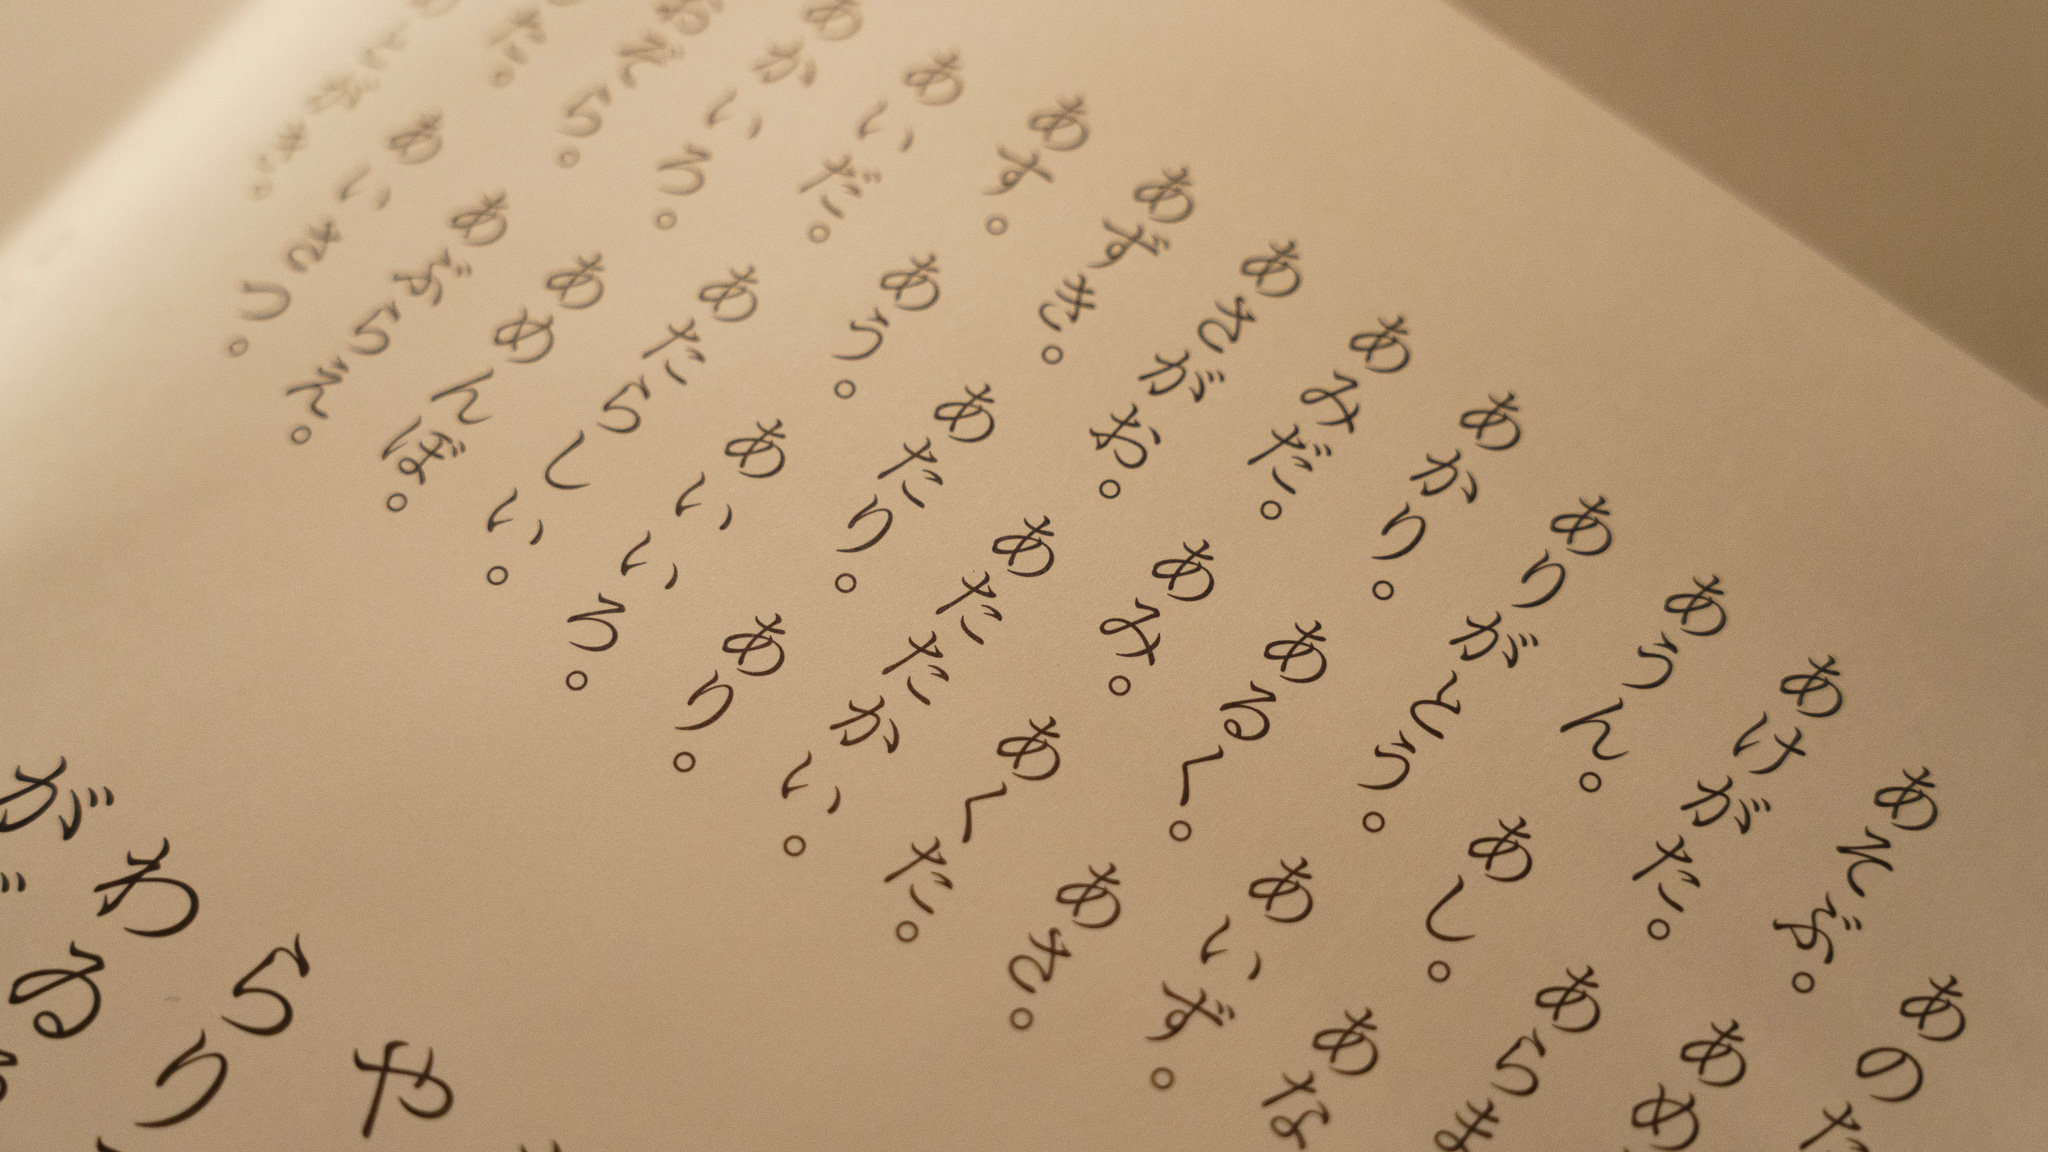 あのた
あそぶ。あめ
あけがた。あらま
あうん。あし。あな
ありがとう。あいず。
あかり。あるく。あさ。
あみだ。あみ。あくだ。
あさがお。あたたかい。
あずき。あたり。あり。
あす。あう。あいいろ。
あいだ。あたらしい。
あかいろ。あめんぼ。
おぞら。あぶらえ。
た。あいさつ。
とがき。
や
らり
わゐ
が